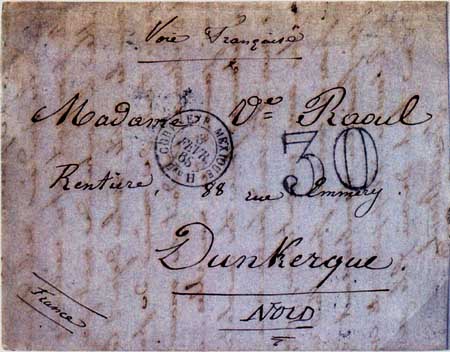 Voie Française
Madame Vve Raoul
30
Rentière, 88 rue Emmery
Dunkerque.
Nord
France
CORR. D. ARMEES MEXIQUE
FEVR.
65